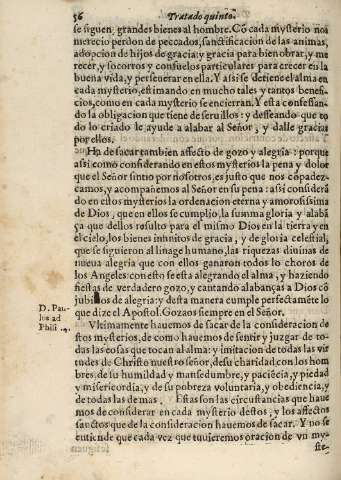 56 Tratado quinto.
se siguen, grandes bienes al hombre. Cō cada mysterio nos
merecio perdon de peccados, sanctificacion de las animas,
adopcion de hijos de gracia: y gracia para bien obrar, y me
recer, y socorros y consuelos particulares para crecer en la
buena vida, y perseuerar en ella. Y assi se detiene el alma en
cada mysterio, estimando en mucho tales y tantos benefi-
cios, como en cada mysterio se encierran. Y esta confessan-
do la obligacion que tiene de seruillos: y desseando que to
do lo criado le ayude a alabar al Señor, y dalle gracias
por ellos.
Ha de sacar tambien affecto de gozo y alegria: porque
assi como considerando en estos mysterios la pena y dolor
que el Señor sintio por nosotros, es justo que nos cōpadez-
camos, y acompañemos al Señor en su pena: assi considerā
do en estos mysterios la ordenacion eterna y amorosissima
de Dios, que en ellos se cumplio, la summa gloria y alabā
ça que dellos resulto para el mismo Dios en la tierra y en
el cielo, los bienes infinitos de gracia, y de gloria celestial,
que se siguieron al linage humano, las riquezas diuinas de
nueua alegria que con ellos ganaron todos lo choros de
los Angeles con esto se esta alegrando el alma, y haziendo
fiestas de verdadero gozo, y cantando alabanças a Dios cō
jubilos de alegria: y desta manera cumple perfectamēte lo
que dize el Apostol. Gozaos siempre en el Señor.
D. Pau-
lus ad
Phili .4.
Vltimamente hauemos de sacar de la consideracion de
stos mysterios, de como hauemos de sentir y juzgar de to-
das las cosas que tocan al alma: y imitacion de todas las vir
tudes de Christo nuestro señor, de su charidad con los hom
bres: de su humildad y mansedumbre, y paciēcia, y piedad
y misericordia, y de su pobreza voluntaria, y obediencia, y
de todas las demas. Estas son las circunstancias que haue
mos de considerar en cada mysterio destos, y los affectos
sanctos que de la consideracion hauemos de sacar. Y no se
entiende que cada vez que tuuieremos oracion de vn my-
ste-